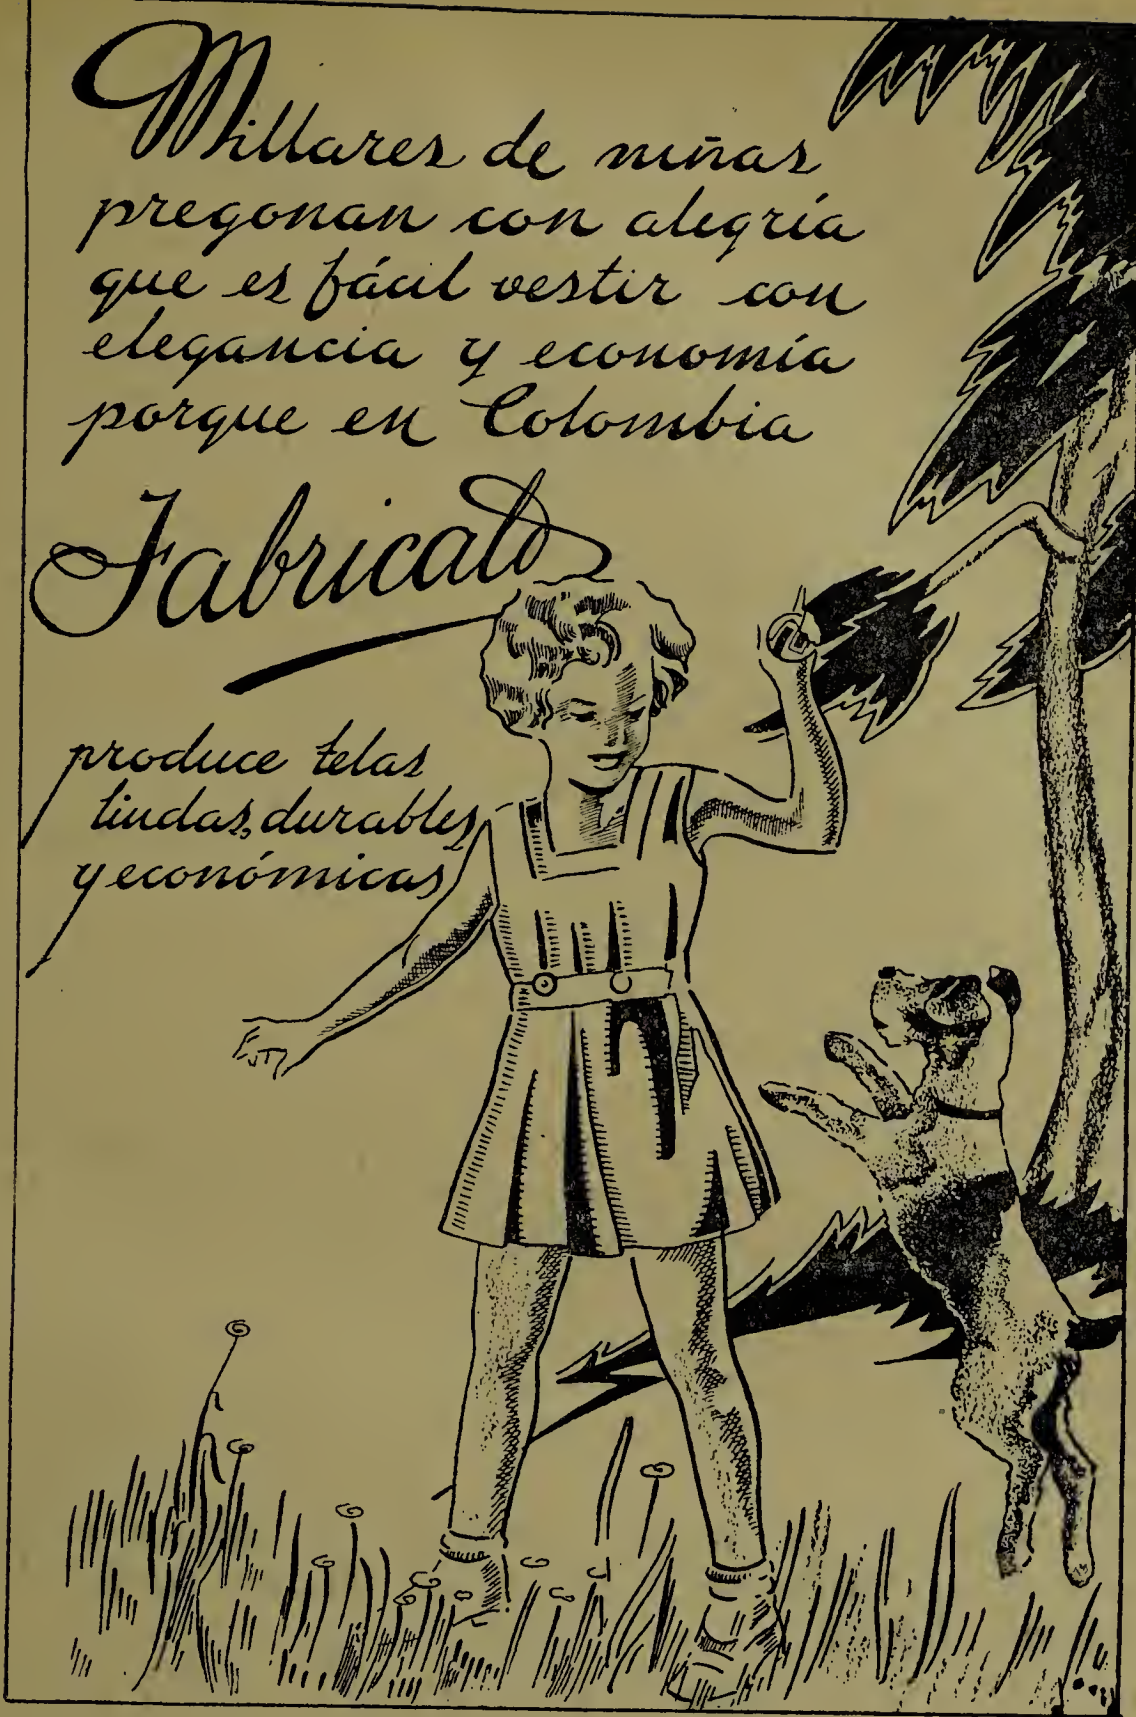 Millares de niñas
pregonan con alegría
que es fácil vestir con
elegancia y economía
porque en Colombia
Fabricato
produce telas
lindas, durables
y económicas